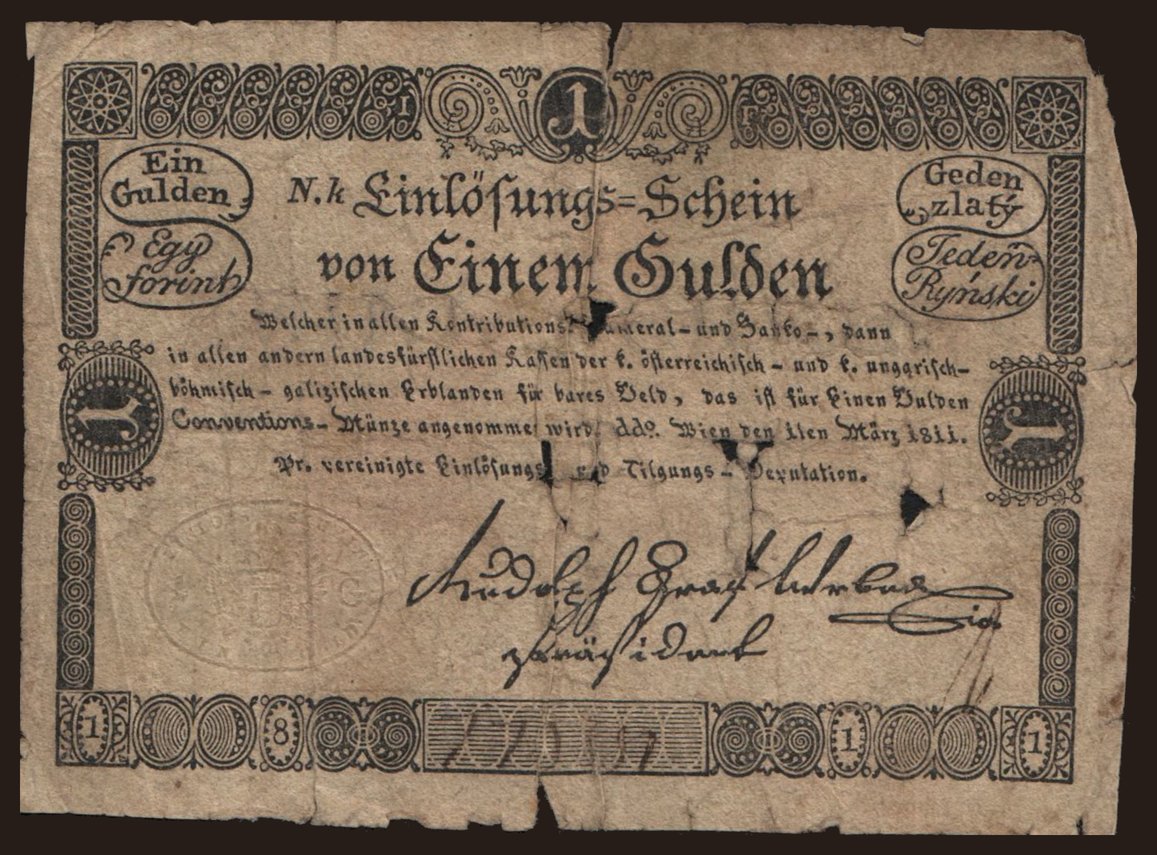 1
Ein
Gulden
Geden
zlatý
Egy
forint
Jeden
Ryński
N.k Einlösungs=Schein
von Einem Gulden
Welcher in allen Kontributions= Kameral- und Banko-, dann
in allen andern landesfürstlichen Kassen der k. österreichisch- und k. unggrisch-
böhmisch- galizischen Erblanden für bares Geld, das ist für Einen Gulden
Conventions- Münze angenommen wird. ddo. Wien den 1ten März 1811.
1
1
Pr. vereinigte Einlösungs und Tilgungs- Deputation.
Rudolph Graf Wrbna
Präsident
1 8 1 1